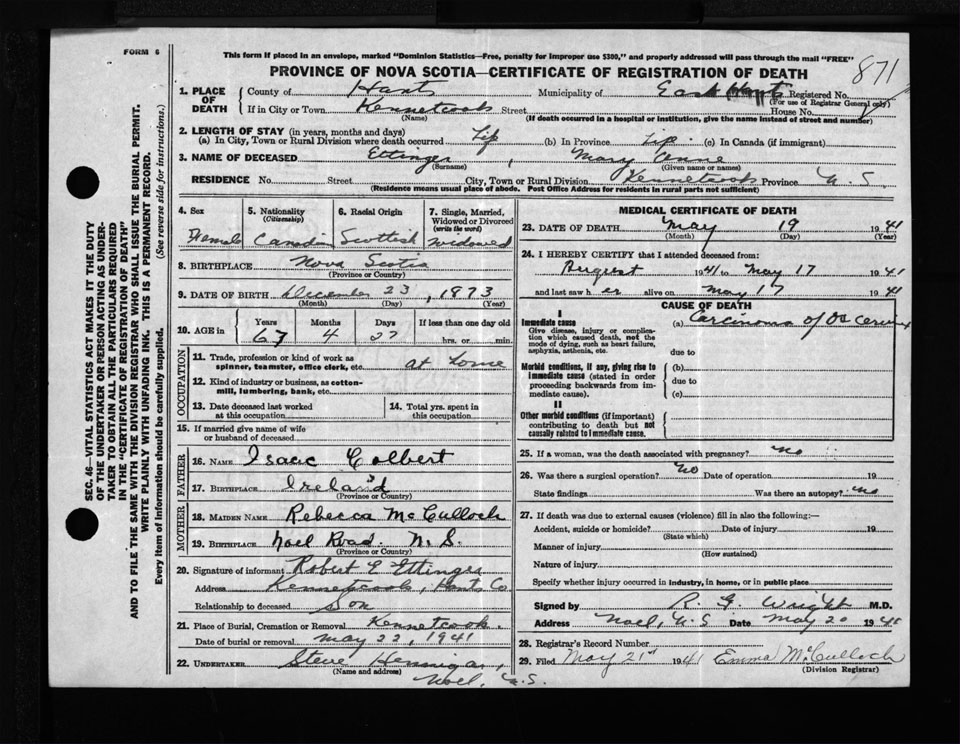 FORM 6
This form if placed in an envelope, marked "Dominion Statistics—Free, penalty for improper use $300," and properly addressed will pass through the mail "FREE"
PROVINCE OF NOVA SCOTIA—CERTIFICATE OF REGISTRATION OF DEATH
871
1. PLACE OF DEATH
County of Hants Municipality of East Hants Registered No.
(For use of Registrar General only)
If in City or Town Kennetcook Street House No.
(Name) (If death occurred in a hospital or institution, give the name instead of street and number)
2. LENGTH OF STAY (in years, months and days)
(a) In City, Town or Rural Division where death occurred Life (b) In Province Life (c) In Canada (if immigrant)
3. NAME OF DECEASED Ettinger, Mary Anne
(Surname) (Given name or names)
RESIDENCE No. Street City, Town or Rural Division Kennetcook Province N.S.
(Residence means usual place of abode. Post Office Address for residents in rural parts not sufficient)
4. Sex 5. Nationality (Citizenship) 6. Racial Origin 7. Single, Married, Widowed or Divorced (write the word)
Female Canadian Scottish widowed
8. BIRTHPLACE Nova Scotia
(Province or Country)
9. DATE OF BIRTH December 23, 1873
(Month) (Day) (Year)
10. AGE in Years Months Days If less than one day old
67 4 27 hrs. or min.
OCCUPATION
11. Trade, profession or kind of work as spinner, teamster, office clerk, etc. at home
12. Kind of industry or business, as cotton-mill, lumbering, bank, etc.
13. Date deceased last worked at this occupation 14. Total yrs. spent in this occupation
15. If married give name of wife or husband of deceased
FATHER
16. NAME Isaac Colbert
17. BIRTHPLACE Ireland
(Province or Country)
MOTHER
18. MAIDEN NAME Rebecca McCulloch
19. BIRTHPLACE Noel Road. N.S.
(Province or Country)
20. Signature of informant Robert E Ettinger
Address Kennetcook, Hants Co
Relationship to deceased Son
21. Place of Burial, Cremation or Removal Kennetcook
Date of burial or removal May 22, 1941
22. UNDERTAKER Steve Hennigar,
(Name and address)
Noel, N.S.
MEDICAL CERTIFICATE OF DEATH
23. DATE OF DEATH May 19 1941
(Month) (Day) (Year)
24. I HEREBY CERTIFY that I attended deceased from:
August 1941 to May 17 1941
and last saw her alive on May 17 1941
CAUSE OF DEATH
I
Immediate cause
Give disease, injury or complication which caused death, not the mode of dying, such as heart failure, asphyxia, asthenia, etc.
(a) Carcinoma of Os Cervix
due to
Morbid conditions, if any, giving rise to immediate cause (stated in order proceeding backwards from immediate cause).
(b)
due to
(c)
II
Other morbid conditions (if important) contributing to death but not causally related to immediate cause.
25. If a woman, was the death associated with pregnancy? no
26. Was there a surgical operation? no Date of operation 19
State findings Was there an autopsy? no
27. If death was due to external causes (violence) fill in also the following:—
Accident, suicide or homicide? Date of injury 19
(State which)
Manner of injury
(How sustained)
Nature of injury
Specify whether injury occurred in industry, in home, or in public place
Signed by R. G. Wright M.D.
Address Noel, N.S Date May 20 1941
28. Registrar's Record Number
29. Filed May 21st 1941 Emma McCulloch
(Division Registrar)
SEC. 46—VITAL STATISTICS ACT MAKES IT THE DUTY
OF THE UNDERTAKER OR PERSON ACTING AS UNDER-
TAKER TO OBTAIN ALL THE PARTICULARS REQUIRED
IN THE "CERTIFICATE OF REGISTRATION OF DEATH"
AND TO FILE THE SAME WITH THE DIVISION REGISTRAR WHO SHALL ISSUE THE BURIAL PERMIT.
WRITE PLAINLY WITH UNFADING INK. THIS IS A PERMANENT RECORD.
Every item of information should be carefully supplied. (See reverse side for instructions.)